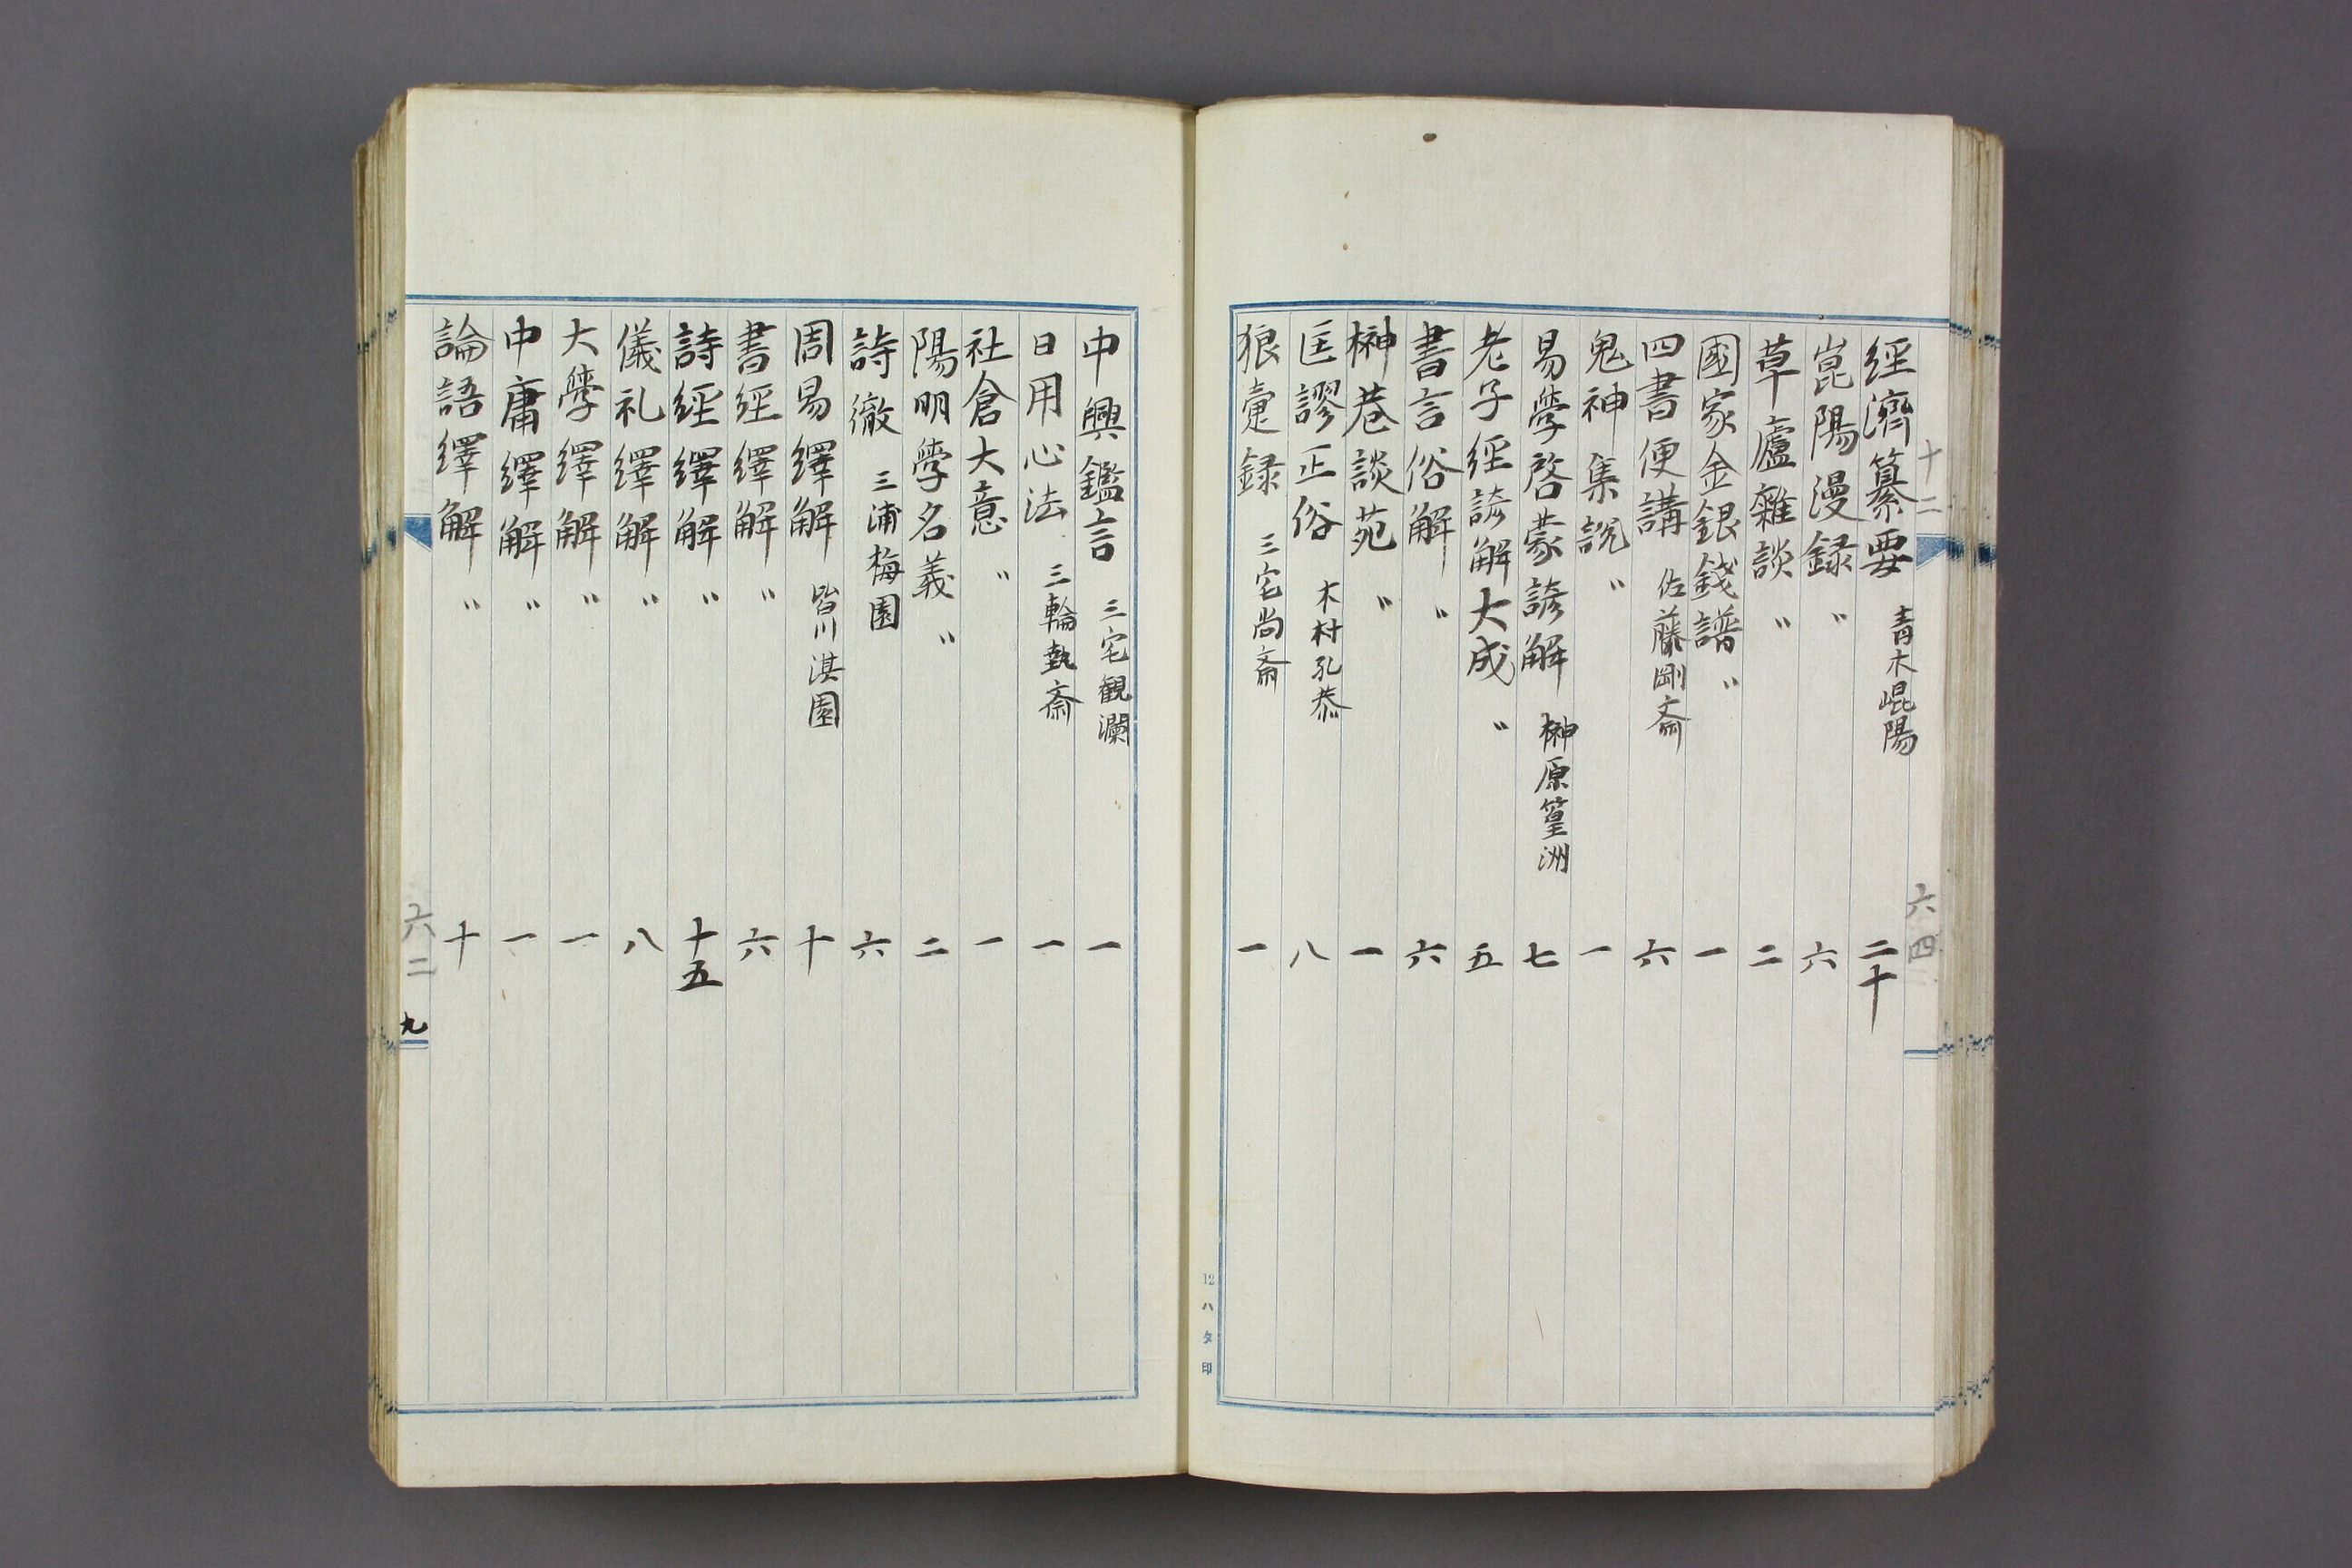 十二
六四
經濟纂要 青木崐陽 二十
崑陽漫録 〃 六
草廬雜談 〃 二
國家金銀錢譜 〃 一
四書便講 佐藤剛斎 六
鬼神集説 〃 一
易學啓蒙諺解 榊原篁洲 七
老子經諺解大成 〃 五
書言俗解 〃 六
榊巷談苑 〃 一
匡謬正俗 木村孔恭 八
狼疐録 三宅尚斎 一
12ハタ印
中興鑑言 三宅観瀾 一
日用心法 三輪執斎 一
社倉大意 〃 一
陽明學名義 〃 二
詩徹 三浦梅園 六
周易繹解 皆川淇園 十
書經繹解 〃 六
詩經繹解 〃 十五
儀礼繹解 〃 八
大學繹解 〃 一
中庸繹解 〃 一
論語繹解 〃 十
六二
九